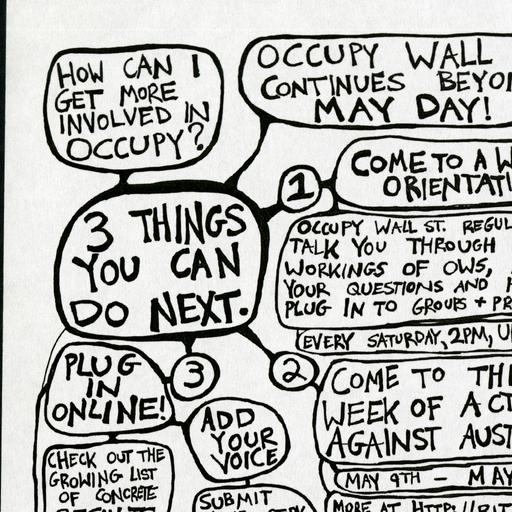 HOW CAN I
GET MORE
INVOLVED IN
OCCUPY?
OCCUPY WALL
CONTINUES
MAY DAY!
3 THINGS
YOU CAN
DO NEXT.
1
COME TO A
OCCUPY WALL ST.
TALK YOU THROUGH
WORKINGS OF OWS,
YOUR QUESTIONS AND
PLUG IN TO GROUPS +
EVERY SATURDAY, 2PM,
2
COME TO
WEEK OF
AGAINST
MAY 9TH - MAY
MORE AT
3
PLUG
IN
ONLINE!
CHECK OUT THE
GROWING LIST
OF CONCRETE
ADD
YOUR
VOICE
SUBMIT